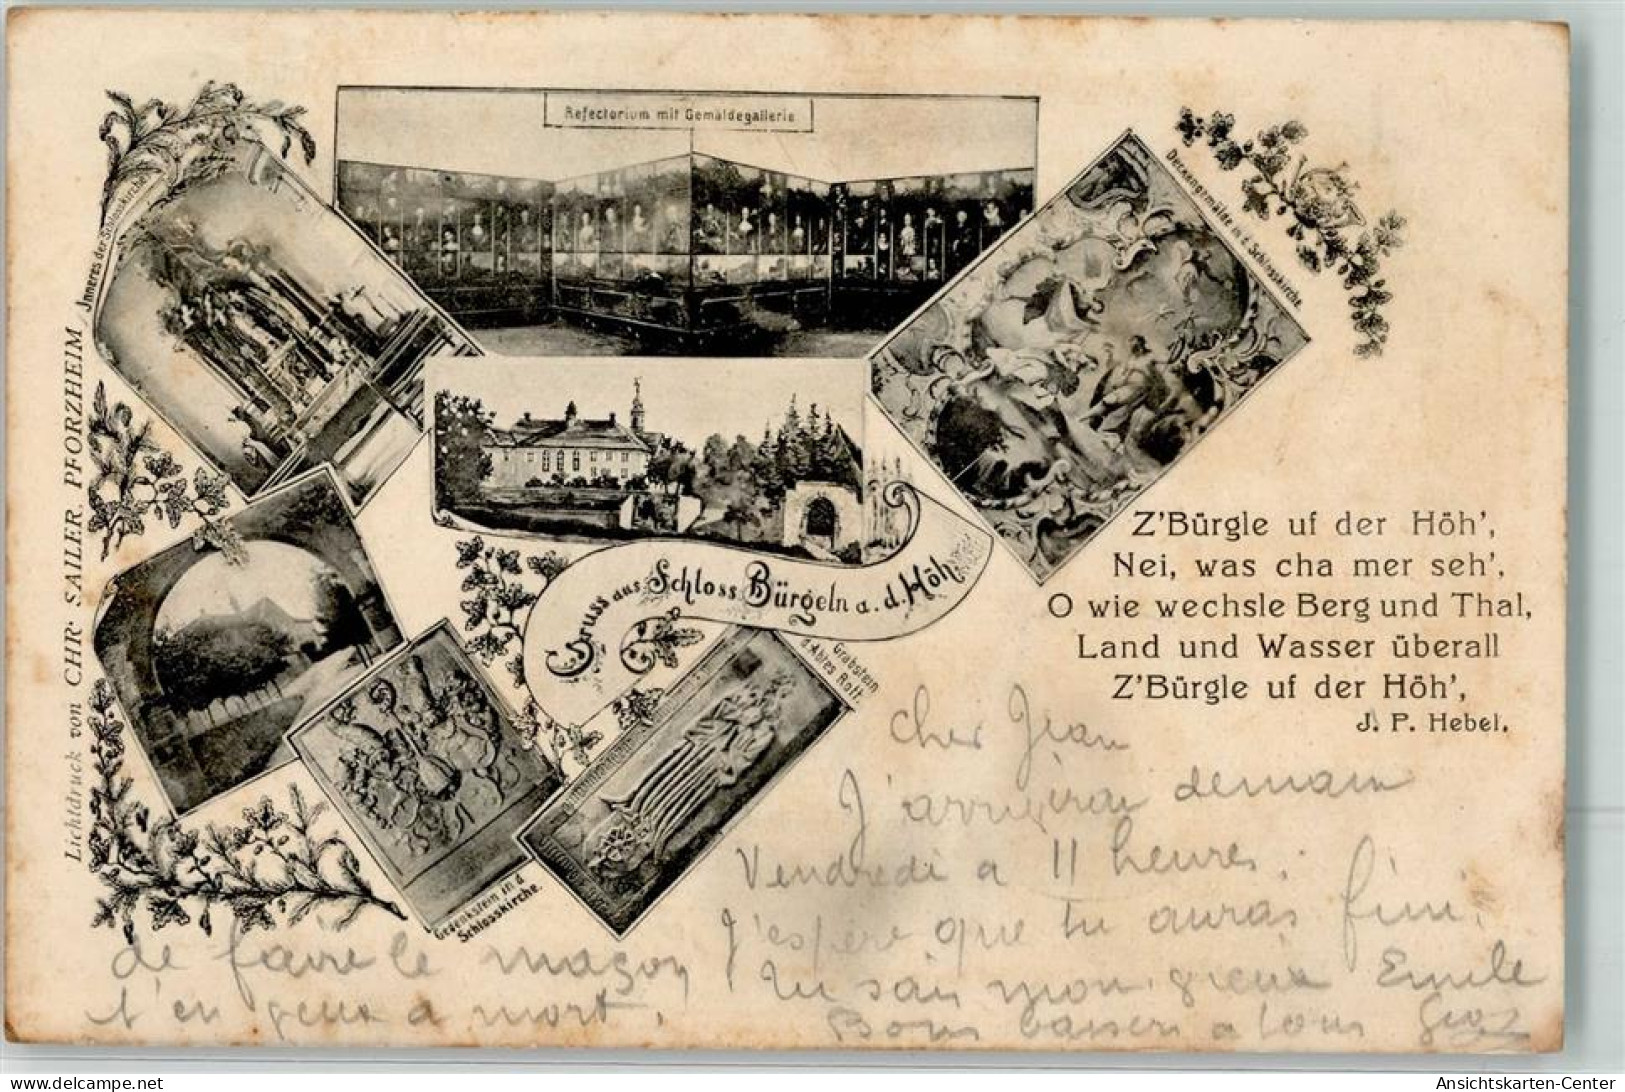 Refectorium mit Gemäldegallerie
Inneres der Schlosskirche
Deckengemälde in d. Schlosskirche
Lichtdruck von CHR. SAILER, PFORZHEIM
Gruss aus Schloss Bürgeln a. d. Höh
Grabstein
d. Abtes Rott.
Gedenkstein in d.
Schlosskirche.
Z'Bürgle uf der Höh',
Nei, was cha mer seh',
O wie wechsle Berg und Thal,
Land und Wasser überall
Z'Bürgle uf der Höh',
J. P. Hebel.
Cher Jean
J'arriverai demain
Vendredi a 11 heures.
J'espére que tu auras fini
de faire le maçon
Tu sais mon vieux Emile
t'en veux a mort.
Bons baisers a tous
Ansichtskarten-Center